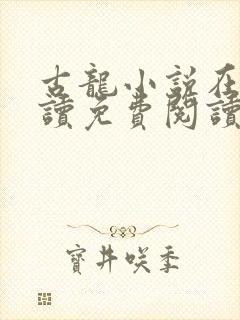 古龍小說在
讀免費閱讀
寶井咲季